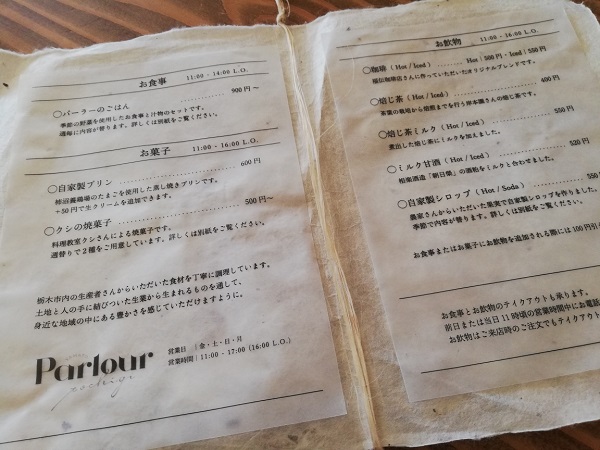 お食事 11:00 - 14:00 L.O.
○パーラーのごはん 900円〜
季節の野菜を使用したお食事と汁物のセットです。
週毎に内容が替ります。詳しくは別紙をご覧ください。
お菓子 11:00 - 16:00 L.O.
○自家製プリン 600円
柿沼養鶏場のたまごを使用した蒸し焼きプリンです。
+50円で生クリームを追加できます。
○クシの焼菓子 500円〜
料理教室クシさんによる焼菓子です。
週替りで2種をご用意しています。詳しくは別紙をご覧ください。
栃木市内の生産者さんからいただいた食材を丁寧に調理しています。
土地と人の手に結びついた生業から生まれるものを通して、
身近な地域の中にある豊かさを感じていただけますように。
Parlour
tochigi
営業日 | 金・土・日・月
営業時間 | 11:00 - 17:00 (16:00 L.O.)
お飲物 11:00 - 16:00 L.O.
○珈琲 ( Hot / Iced ) Hot | 500円・Iced | 550円
珈琲店さんに作っていただいたオリジナルブレンドです。
○焙じ茶 ( Hot / Iced ) 400円
茶葉の栽培から焙煎までを行う さんの焙じ茶です。
○焙じ茶ミルク ( Hot / Iced ) 550円
煮出した焙じ茶にミルクを加えました。
○ミルク甘酒 ( Hot / Iced ) 520円
相楽酒造「朝日榮」の酒粕をミルクと合わせました。
○自家製シロップ ( Hot / Soda ) 550
農家さんからいただいた果実で自家製シロップを作りました。
季節で内容が替ります。詳しくは別紙をご覧ください。
お食事またはお菓子にお飲物を追加される際には100円引
お食事とお飲物のテイクアウトも承ります。
前日または当日11時頃の営業時間中にお電話
お飲物はご来店時のご注文でもテイクアウ